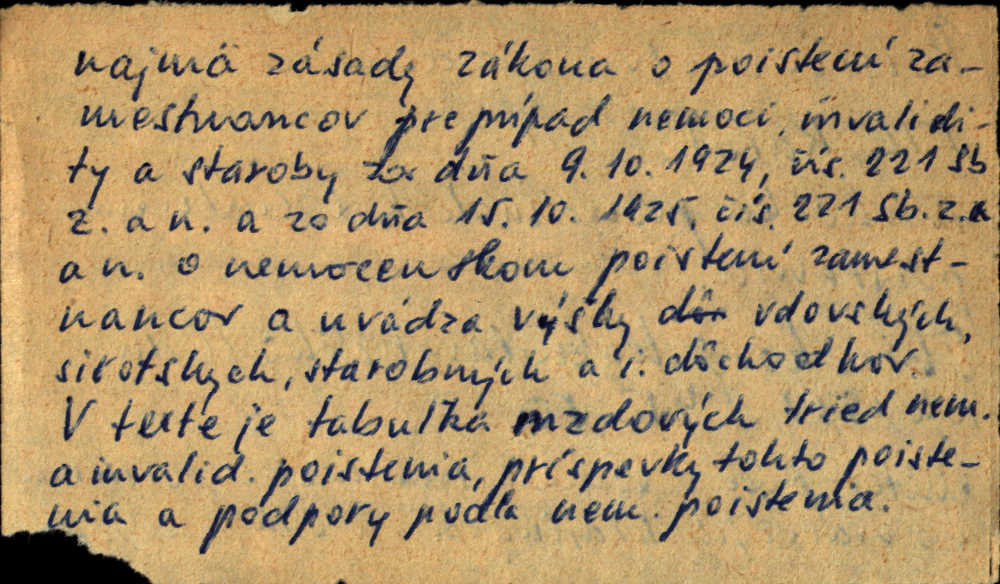 najmä zásady zákona o poistení za-
mestnancov pre prípad nemoci, invalidi-
ty a staroby zo dňa 9.10.1924, čís. 221 Sb
z. a n. a zo dňa 15.10.1925 čís. 221 Sb. z. a
a n. o nemocenskom poistení zamest-
nancov a uvádza výšky dôr vdovských,
sirotských, starobných a i. dôchodkov.
V texte je tabuľka mzdových tried nem.
a invalid. poistenia, príspevky tohto poiste-
nia a podpory podľa nem. poistenia.